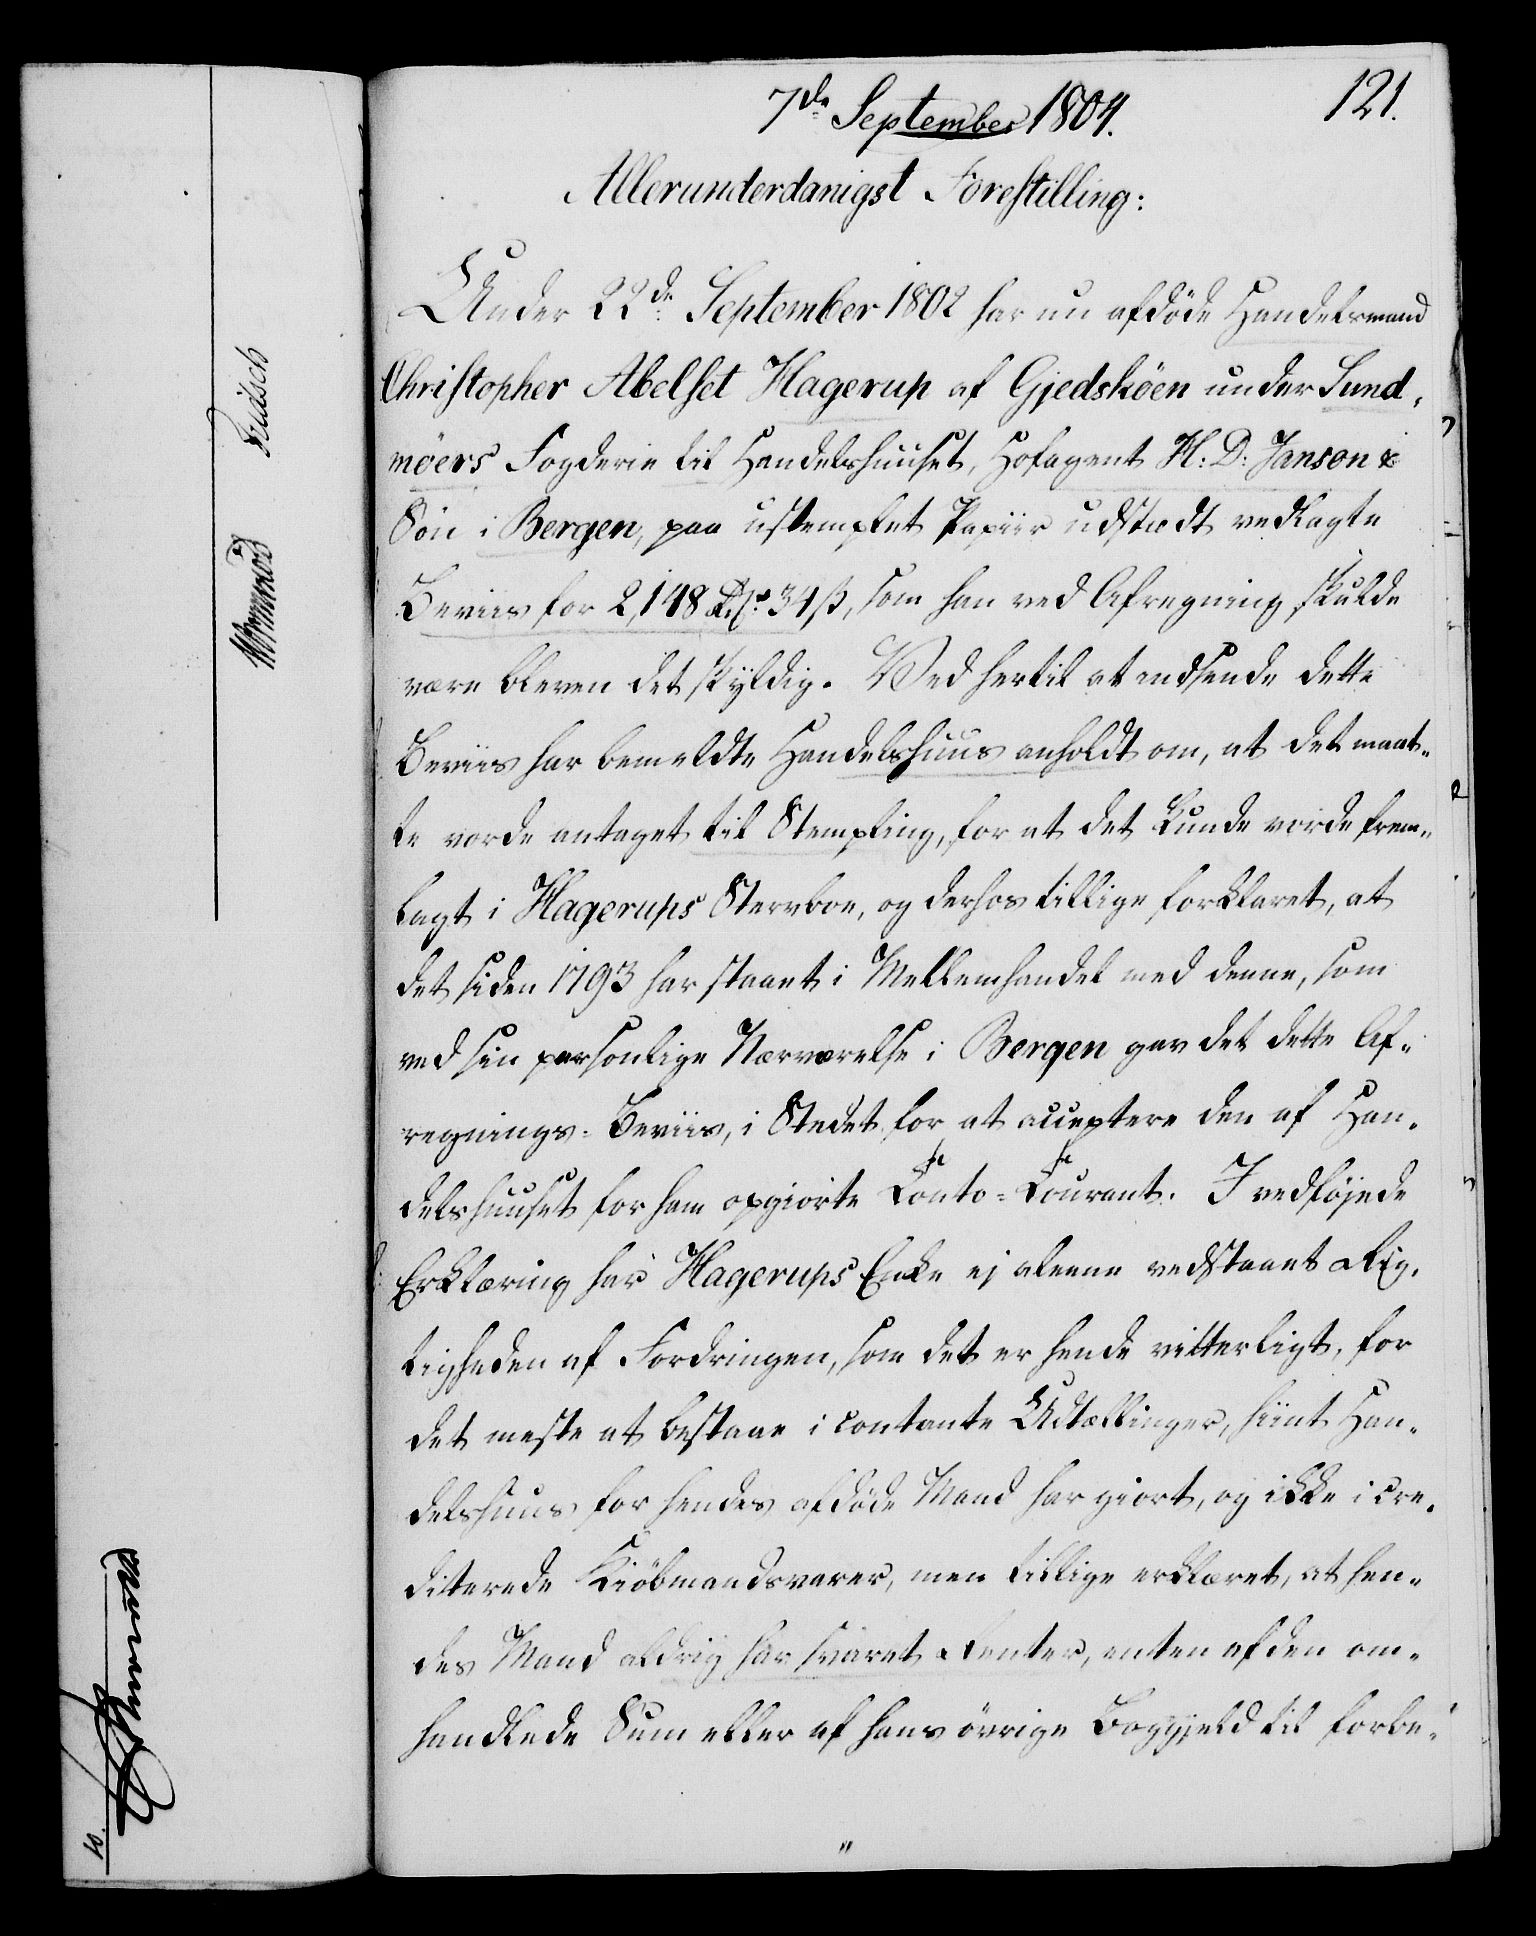 7de September 1804.
121.
Allerunderdanigst Forestilling:
Under 22de September 1802 har nu afdöde Handelsmand
Christopher Abelset Hagerup af Gjedsköen under Sund-
möers Fogderie til Handelshuuset, Hofagent H: D: Janson &
Sön i Bergen, paa ustemplet Papiir udstædt vedlagte
Beviis for 2,148 Rdlr 34 ß, som han ved Afregning skulde
være bleven det skyldig. Ved hertil at indsende dette
Beviis har bemeldte Handelshuus anholdt om, at det maat-
te vorde antaget til Stempling, for at det kunde vorde frem-
lagt i Hagerups Stervboe, og derhos tillige forklaret, at
det siden 1793 har staaet i Mellemhandel med denne, som
ved sin personlige Nærværelse i Bergen gav det dette Af-
regnings-Beviis, i Stedet for at acceptere den af Han-
delshuuset for ham opgiorte Conto-Courant. I vedföjede
Erklæring har Hagerups Enke ej aleene vedstaaet Rig-
tigheden af Fordringen, som det er hende vitterligt, for
det meste at bestaae i contante Udtællinger, hiint Han-
delshuus for hendes afdöde Mand har giort, og ikke i cre-
diterede Kiöbmandsvarer, men tillige erklæret, at hen-
des Mand aldrig har svaret Renter, enten af den om-
handlede Sum eller af hans övrige Boggjeld til forbe-
"
Fridsch
Wormskiold